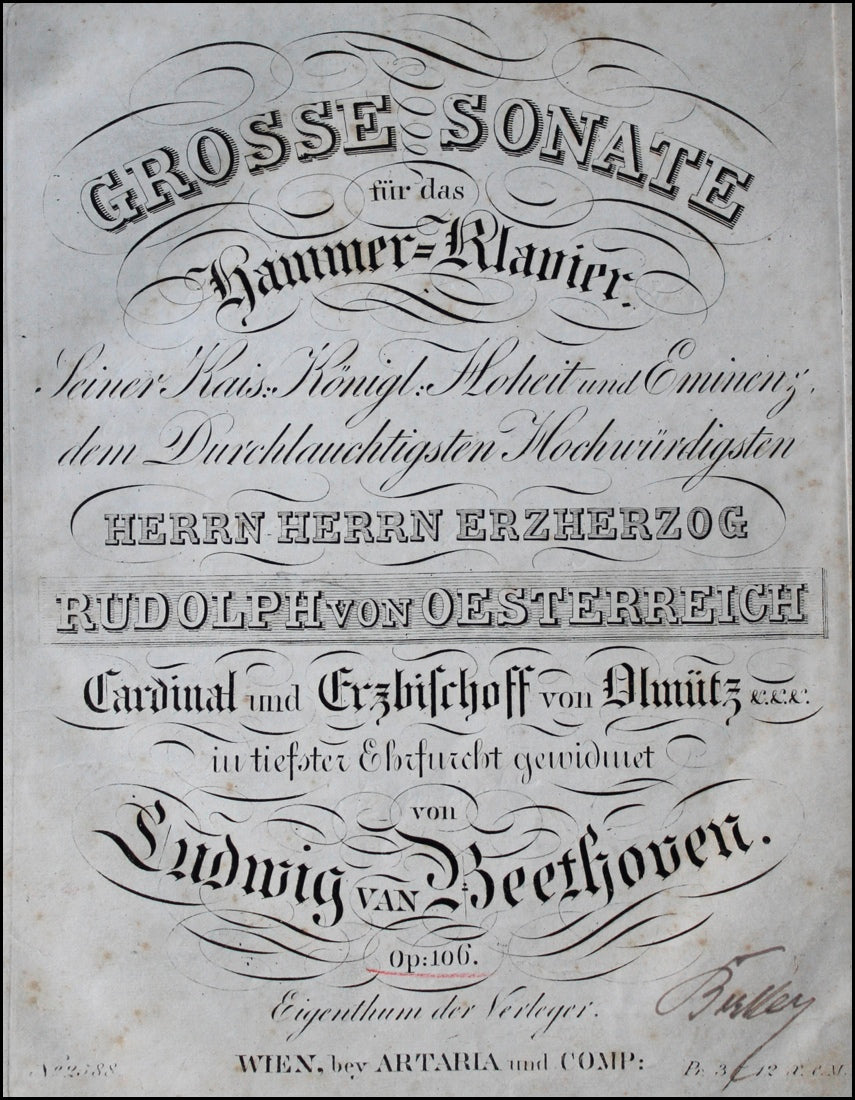 GROSSE SONATE
für das
Hammer=Klavier.
Seiner Kais: Königl: Hoheit und Eminenz,
dem Durchlauchtigsten Hochwürdigsten
HERRN HERRN ERZHERZOG
RUDOLPH VON OESTERREICH
Cardinal und Erzbischoff von Olmütz &.&.&.
in tiefster Ehrfurcht gewidmet
von
Ludwig VAN Beethoven.
Op: 106.
Eigenthum der Verleger.
WIEN, bey ARTARIA und COMP:
No 2588
Pr. 3 f 12 x. C.M.